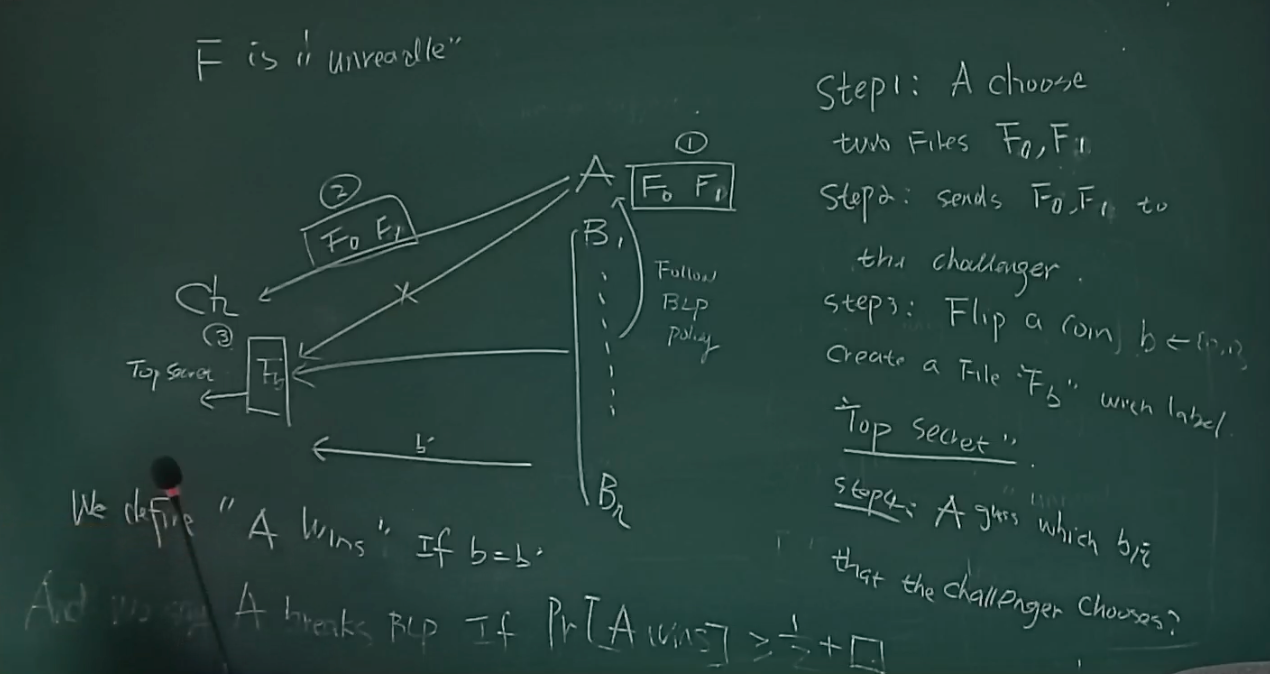 F is "unreadle"
①
A
F₀ F₁
②
F₀ F₁
B₁
Follow
BLP
policy
Ch
③
Top secret
F_b
b'
Bn
We define "A wins" If b=b'
And we say A breaks BLP If Pr[A wins] ≥ 1/2 + □
Step1: A choose
two Files F₀, F₁
Step2: sends F₀, F₁ to
the challenger.
step3: Flip a coin, b ← {0,1}
Create a File "F_b" with label.
"Top secret".
step4: A guss which bit
that the challenger chooses?